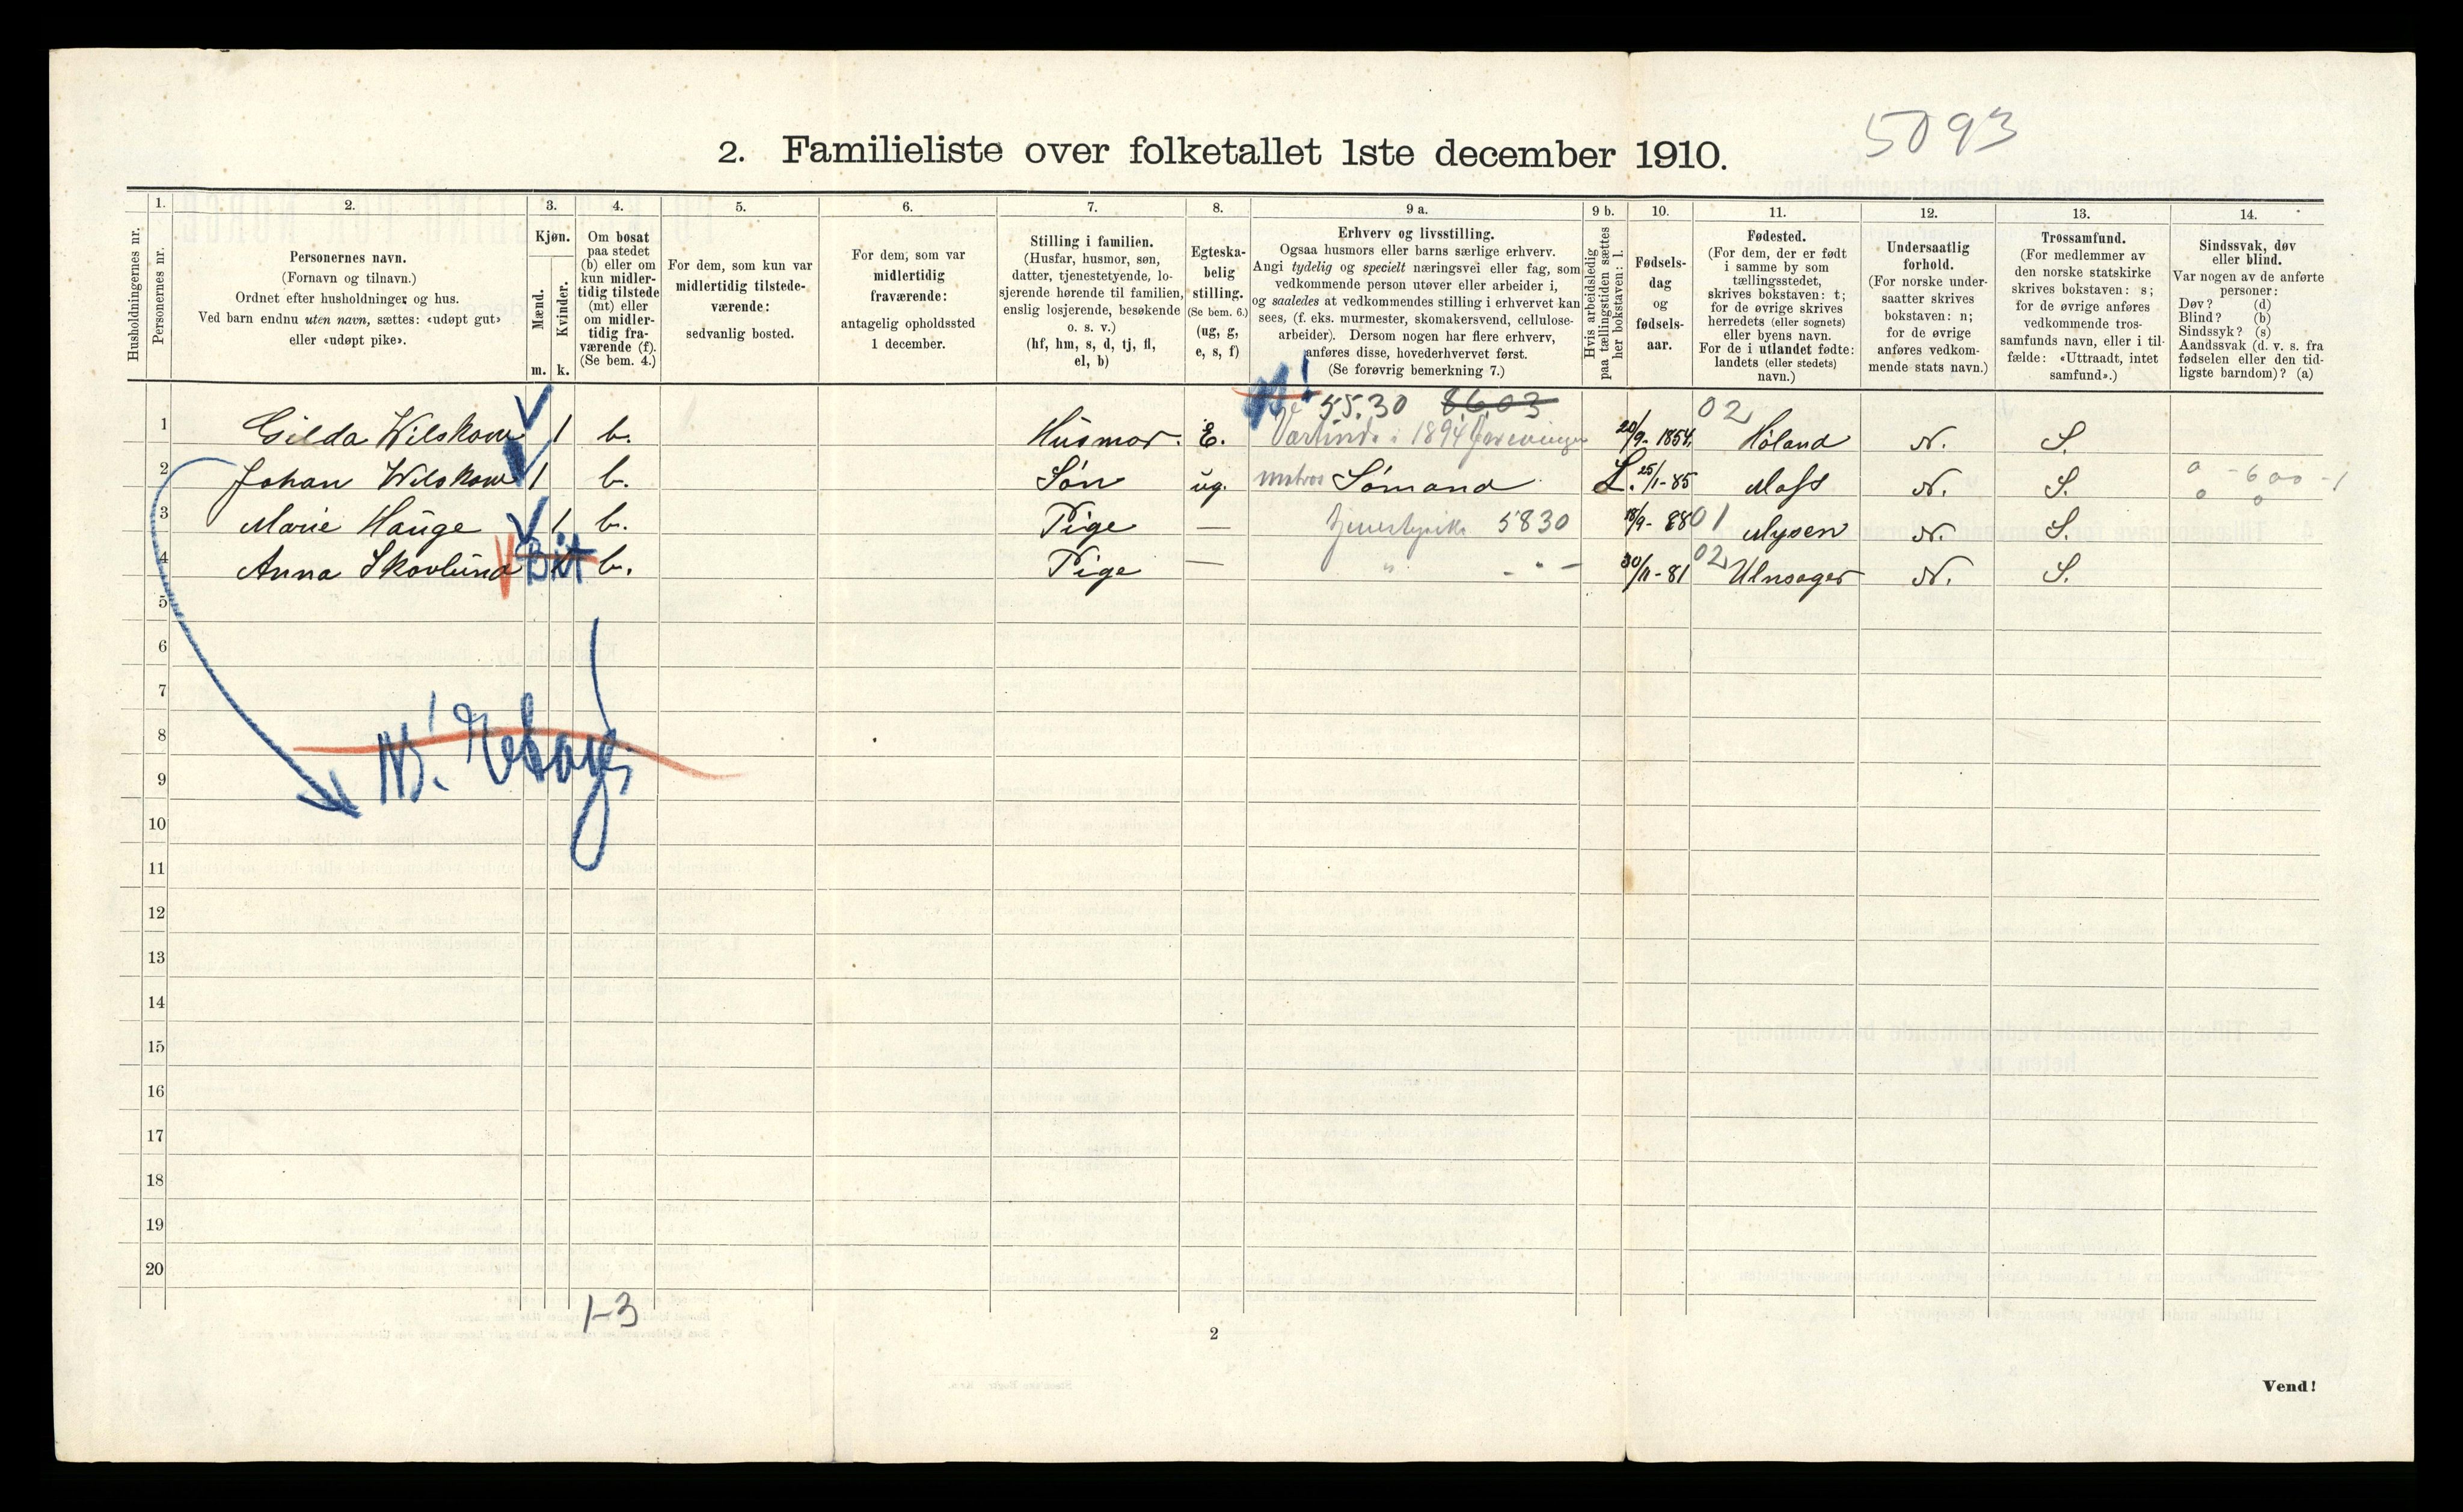 5093
2. Familieliste over folketallet 1ste december 1910.
Husholdningernes nr.
1.
Personernes nr.
2.
Personernes navn.
(Fornavn og tilnavn.)
Ordnet efter husholdninger og hus.
Ved barn endnu uten navn, sættes: «udøpt gut»
eller «udøpt pike».
3.
Kjøn.
Mænd.
Kvinder.
m. k.
4.
Om bosat
paa stedet
(b) eller om
kun midler-
tidig tilstede
(mt) eller
om midler-
tidig fra-
værende (f).
(Se bem. 4.)
5.
For dem, som kun var
midlertidig tilstede-
værende:
sedvanlig bosted.
6.
For dem, som var
midlertidig
fraværende:
antagelig opholdssted
1 december.
7.
Stilling i familien.
(Husfar, husmor, søn,
datter, tjenestetyende, lo-
sjerende hørende til familien,
enslig losjerende, besøkende
o. s. v.)
(hf, hm, s, d, tj, fl,
el, b)
8.
Egteska-
belig
stilling.
(Se bem. 6.)
(ug, g,
e, s, f)
9 a.
Erhverv og livsstilling.
Ogsaa husmors eller barns særlige erhverv.
Angi tydelig og specielt næringsvei eller fag, som
vedkommende person utøver eller arbeider i,
og saaledes at vedkommendes stilling i erhvervet kan
sees, (f. eks. murmester, skomakersvend, cellulose-
arbeider). Dersom nogen har flere erhverv,
anføres disse, hovederhvervet først.
(Se forøvrig bemerkning 7.)
9 b.
Hvis arbeidsledig
paa tællingstiden sættes
her bokstaven: l.
10.
Fødsels-
dag
og
fødsels-
aar.
11.
Fødested.
(For dem, der er født
i samme by som
tællingsstedet,
skrives bokstaven: t;
for de øvrige skrives
herredets (eller sognets)
eller byens navn.
For de i utlandet fødte:
landets (eller stedets)
navn.)
12.
Undersaatlig
forhold.
(For norske under-
saatter skrives
bokstaven: n;
for de øvrige
anføres vedkom-
mende stats navn.)
13.
Trossamfund.
(For medlemmer av
den norske statskirke
skrives bokstaven: s;
for de øvrige anføres
vedkommende tros-
samfunds navn, eller i til-
fælde: «Uttraadt, intet
samfund».)
14.
Sindssvak, døv
eller blind.
Var nogen av de anførte
personer:
Døv? (d)
Blind? (b)
Sindssyk? (s)
Aandssvak (d. v. s. fra
fødselen eller den tid-
ligste barndom)? (a)
55.30 8603 02
1 Gilda Wilskow 1 b. Husmor. E. Værtinde i 1894 foreningen 20/9-1854, Høland N. S.
2 Johan Wilskow 1 b. Søn ug. matros Sømand L. 25/1-85 Moss N. S. 0 - 600 -1
0 0
3 Marie Hauge 1 b. Pige — tjenestepike 5830 18/9-88 01 Mysen N. S.
4 Anna Skovlund Bit b. Pige — " - " - 30/11-81 02 Ulnsager N. S.
5
6
7
8
9
10
11
12
13
14
15
16
17
18
19
20
1-3
2
Vend!